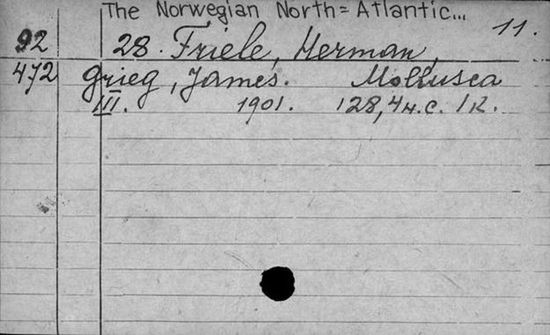 The Norwegian North=Atlantic...
11.
92 28. Friele, Herman,
472 Grieg, James. Mollusca
III. 1901. 128, 4 н.с. 1 к.